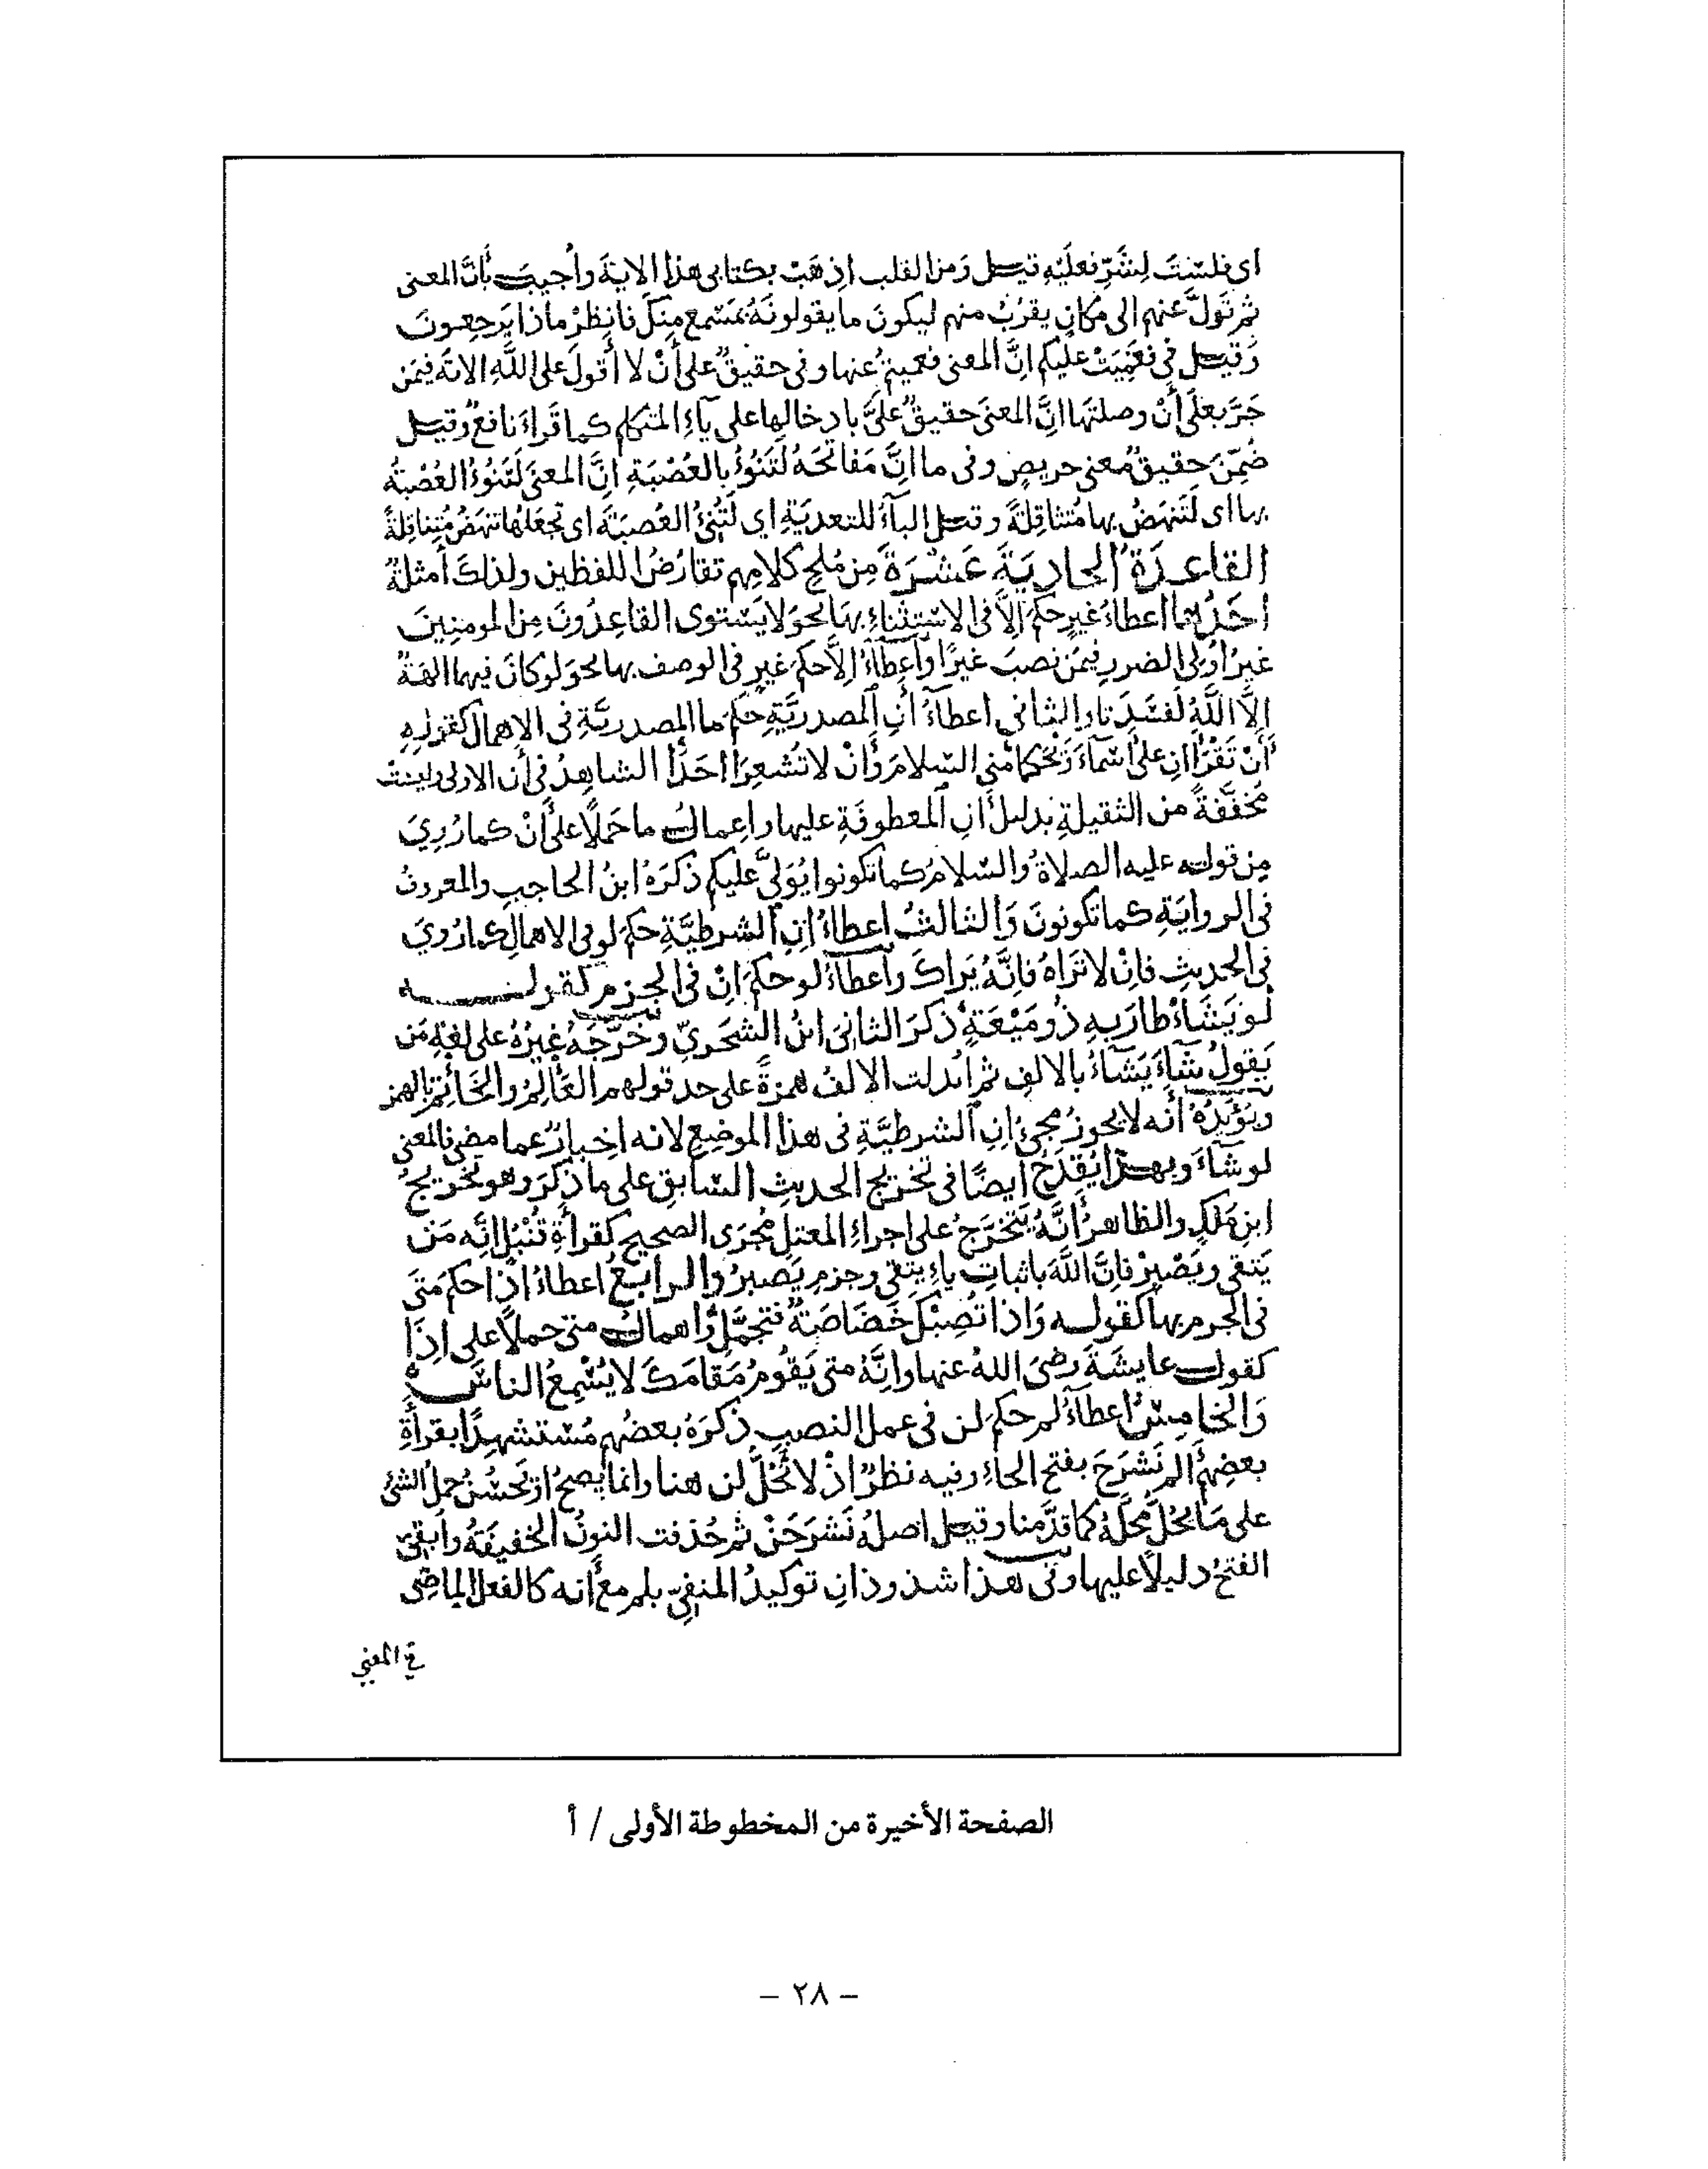 اى فلسْتَ لِشَرِّ فعلَيْهِ قيـل وَمن القلب اذهَبْ بكتابى هذا الاية وأجيبَ بأنَّ المعنى
ثم تَولَّ عنهم الى مكانٍ يقرُبُ منهم ليكونَ ما يقولونَهُ بمَسْمع مِنكَ فانظرْ ماذا يَرجعونَ
وَقيـل فى فعَمِيَتْ عليكم انَّ المعنى فعميتم عنها وفى حقيقٌ على أَنْ لا أقولَ على اللَّهِ الاية فيمَن
جَرَّ بعلَى أَنْ وصلتَها انَّ المعنىَ حقيقٌ علىَّ بادخالها على يآءِ المتكلم كما قَراءَ نافعٌ وقيـل
ضُمِّنَ حقيقٌ معنى حريصٍ وفى ما انَّ مَفاتحَهُ لَتَنُوْءُ بالعُصْبَةِ انَّ المعنَى لَتَنُوْءُ العُصْبَةُ
بها اى لَتَنهَضُ بها مُتثاقِلَةً وقيـل البآءُ للتعديَةِ اي لَتُنِئُ العُصبَةَ اى تجعَلُها تنهَضُ مُتثاقِلةً
القاعدَةُ الحاديَةَ عَشْرَةَ مِن مُلَحِ كلامِهم تقارُضُ اللفظين ولذلكَ أمثلةٌ
أحَدُهما اعطاءُ غيرٍ حكمَ إلاَّ فى الاسْتِثْناءِ بهَا نحوَ لا يَسْتوى القاعِدُونَ مِن المومنِينَ
غيرَ اُولى الضررِ فيمَن نصبَ غيرًا وأعطآءُ إلاَّ حكمَ غيرٍ فى الوصف بها نحوَ لو كانَ فيهما الهَةٌ
إلاَّ اللَّهُ لَفسَدَتا والثانى اعطآءُ أَنِ المصدريَّةِ حكمَ ما المصدريَّةِ فى الاهمال كقولِهِ
أَنْ تَقْرَاانِ على اسْمآءَ وَيْحَكما مِنى السّلامَ وَأَنْ لا تُشعِرَا احَدًا الشاهدُ فى أن الاولى وليسَتْ
مخفّفةً من الثقيلةِ بدليل أَنِ المعطوفَةِ عليها واعمالُ ما حَملاً على أَنْ كما رُوِيَ
مِن قولـه عليه الصلاةُ والسّلامُ كما تكونوا يُوَلىَّ عليكم ذكَرَهُ ابنُ الحاجبِ والمعروفُ
فى الروايَةِ كما تكونونَ وَالثالثُ اعطاءُ انِ الشرطيَّةِ حكمَ لو فى الاهمالِ كما رُوِيَ
فى الحديثِ فانْ لا تَراهُ فانَّهُ يَراكَ وأعطآءُ لو حكمَ انْ فى الجزم كقولـــه
لو يَشَأْ طارَ بهِ ذُو مَيْعَةٍ ذكرَ الثانِىَ ابنُ الشَجَريِّ وخَرَّجَهُ غيرُهُ على لغةِ مَن
يَقولُ شآءَ يَشآءُ بالالفِ ثم ابُدلت الالفُ همزةً على حد قولهم العَأْلِمُ والخَأْتمُ بالهمز
ويُؤيّدُهُ أنه لا يجوزُ مجئُ انِ الشرطيَّةِ فى هذا الموضِعِ لانه اخبارٌ عما مضى فالمعنى
لو شآءَ وبهـذا يُقدَحُ ايضًا فى تخريج الحديثِ السّابق على ما ذُكِرَ وهو تخريجُ
ابنِ ملكٍ والظاهرُ أنَّهُ يَتخرَّجُ على اجراءِ المعتلِ مُجرَى الصحيح كقرأةِ قُنْبُلٍ انَّه مَنْ
يَتقى ويَصْبِرْ فانَّ اللَّهَ باثباتِ ياءِ يتقى وجزمِ يَصبرْ والرابعُ اعطاءُ اذَا حكمَ متىَ
فى الجزم بها كقولـه وَاذا تُصِبْكَ خَصَاصَةٌ فتجمَّلِ واهمالُ متى حملاً على اذَا
كقولـ عايشَةَ رضىَ اللهُ عنها وانَّهُ متى يَقُومُ مَقامَكَ لا يُسْمِعُ الناسَ
وَالخامِسُ اعطآءُ لم حكمَ لن فى عمل النصبِ ذكرَهُ بعضُهم مُسْتشهِدًا بقرأةِ
بعضِهم أَلم نَشْرَحَ بفتح الحاءِ وفيه نظرٌ اذْ لا تَحُلُّ لن هنا وانما يصحُ او يَحْسُنُ حملُ الشئِ
على مَا يَحُلُّ مَحلَّهُ كما قدَّمنا وقيـل اصلُهُ نَشرَحَنْ ثم حُذفت النونُ الخفيفَةُ وابقِىَ
الفتحُ دليلاً عليها وفى هذا شذوذانِ توكيدُ المنفىِّ بلم مع أنه كالفعل الماضِى
فى المعنى
الصفحة الأخيرة من المخطوطة الأولى / أ
– ٢٨ –